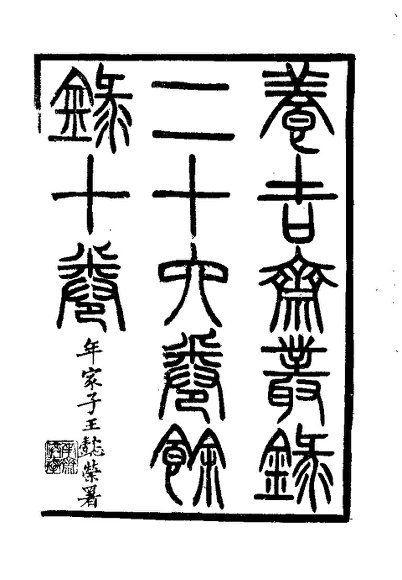 養吉齋叢錄
二十六卷餘
錄十卷
年家子王懿榮署